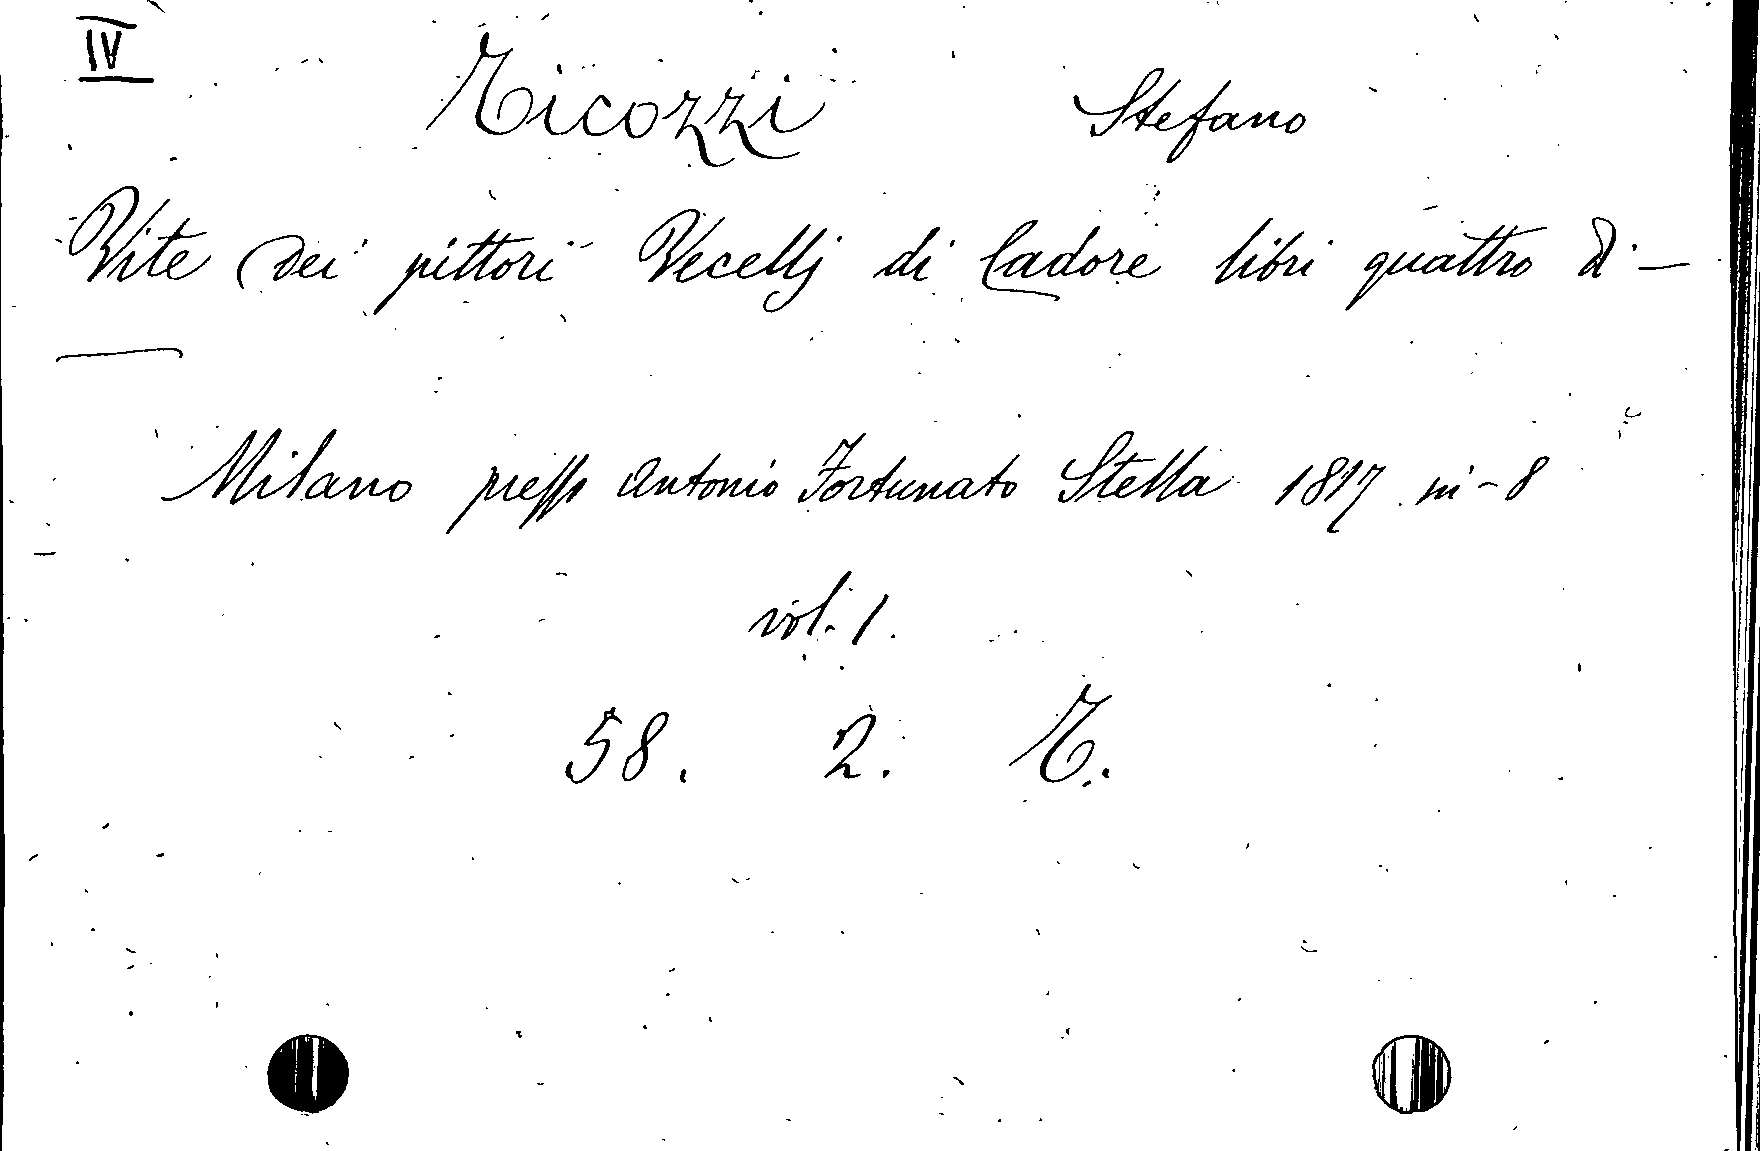 IV
Ticozzi Stefano
Vite dei pittori Vecellj di Cadore libri quattro di —
Milano presso Antonio Fortunato Stella 1817 in-8
vol. 1.
58. 2. T.